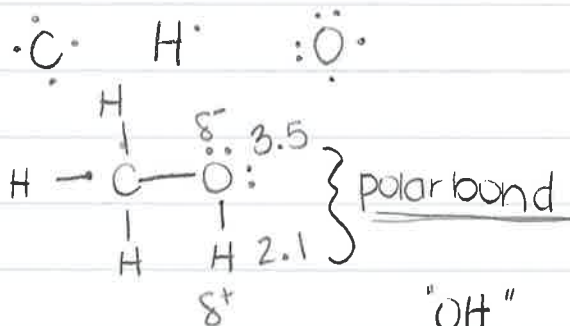 ·C· H· :O·
H
δ⁻ 3.5
H – C – O : polar bond
H H 2.1
δ⁺ "OH"